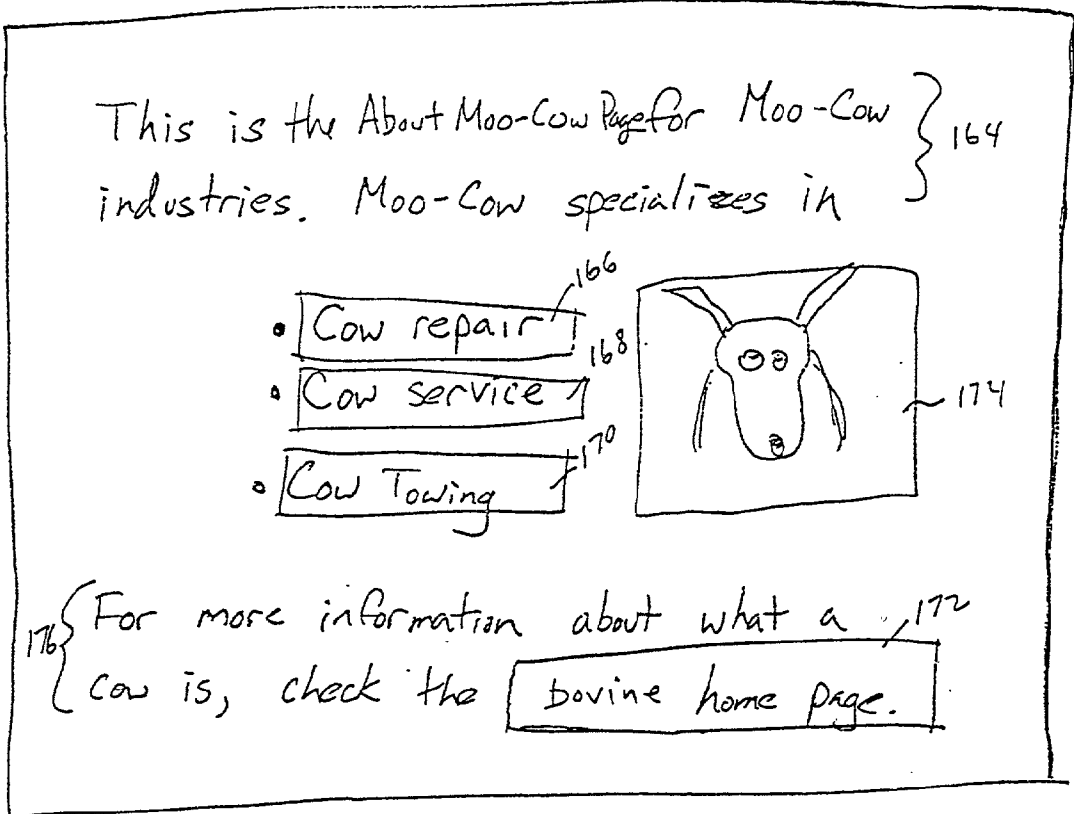 This is the About Moo-Cow Page for Moo-Cow
164
industries. Moo-Cow specializes in
166
• Cow repair
168
• Cow service
174
170
• Cow Towing
For more information about what a
172
176
cow is, check the bovine home page.